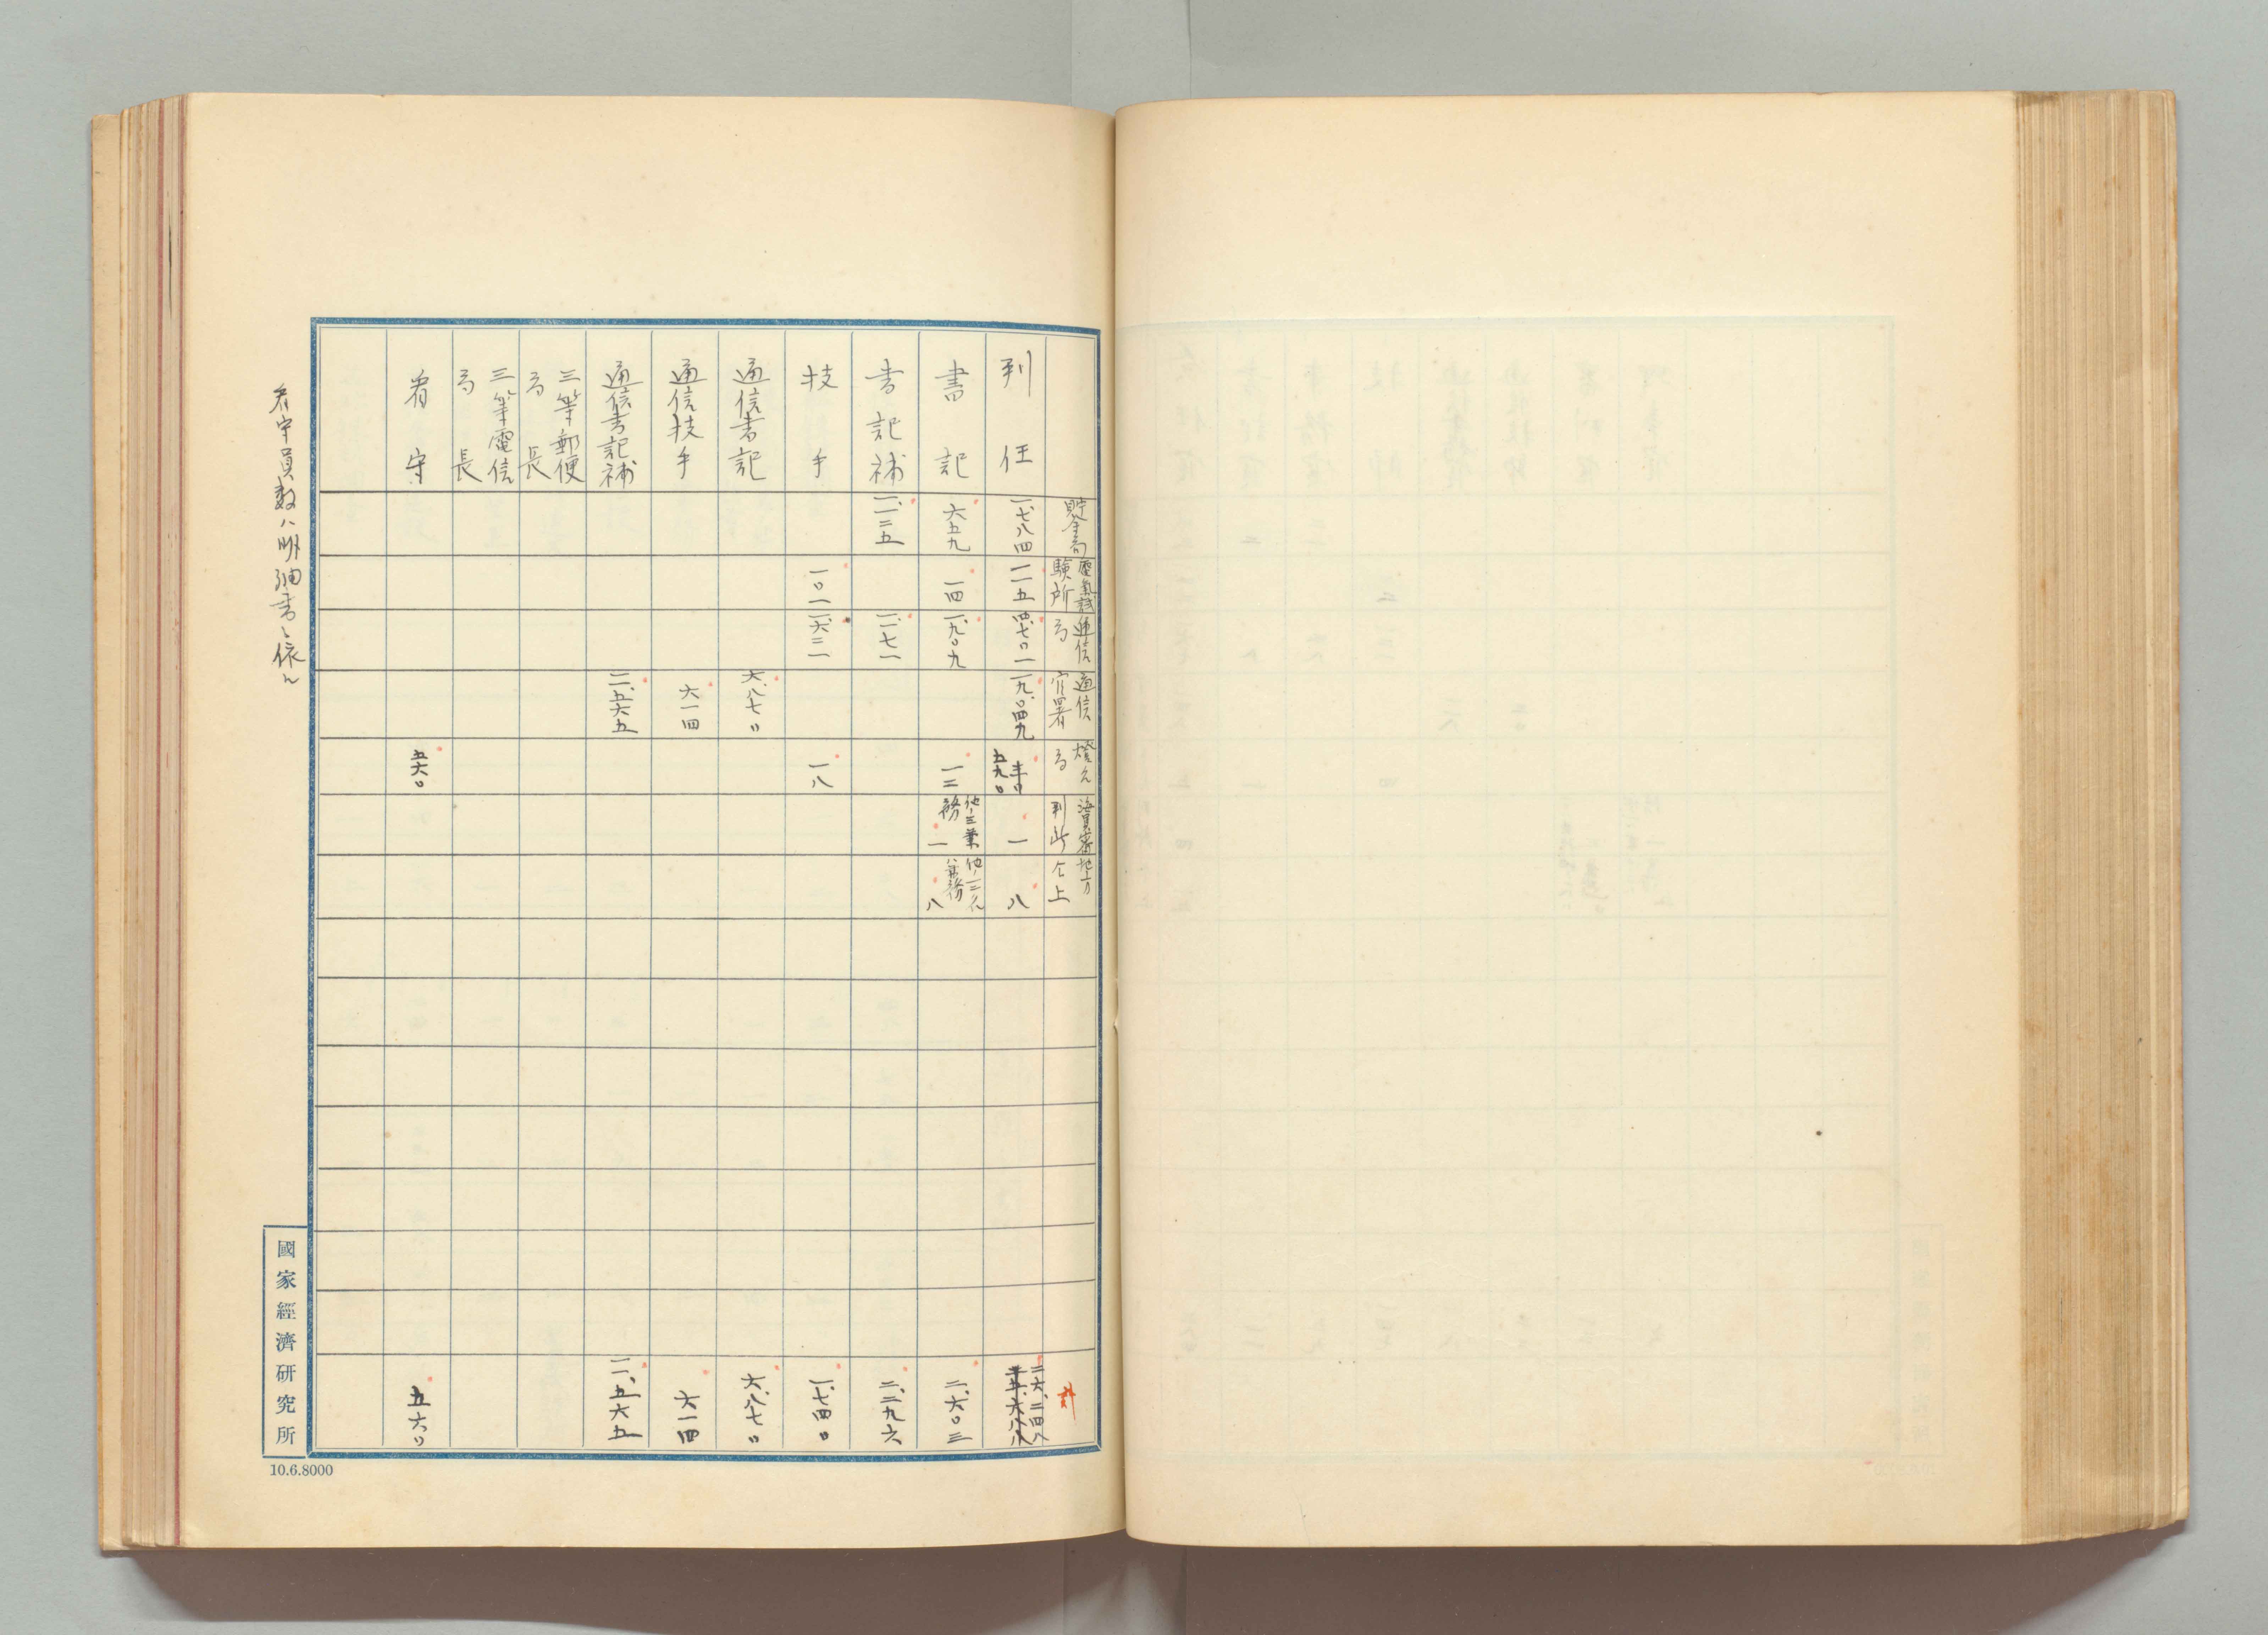 貯金局
電氣試験所
逓信局
逓信官署
燈台局
海員審判所
地方仝上
計
判任
一、七八四
一一五
四、七〇一
一九、〇四九
五九〇
一
八
二六、二四八
書記
六五九
一四
一、九〇九
一二
他ノ三兼務 一
八
二、六〇三
書記補
一、一二五
一、一七一
二、二九六
技手
一〇一
一、六二一
一八
一、七四〇
通信書記
六、八七〇
六、八七〇
通信技手
六一四
六一四
通信書記補
二、五六五
二、五六五
三等郵便局長
三等電信局長
看守
五六〇
五六〇
看守員数ハ明細書ニ依ル
國家經濟研究所
10.6.8000